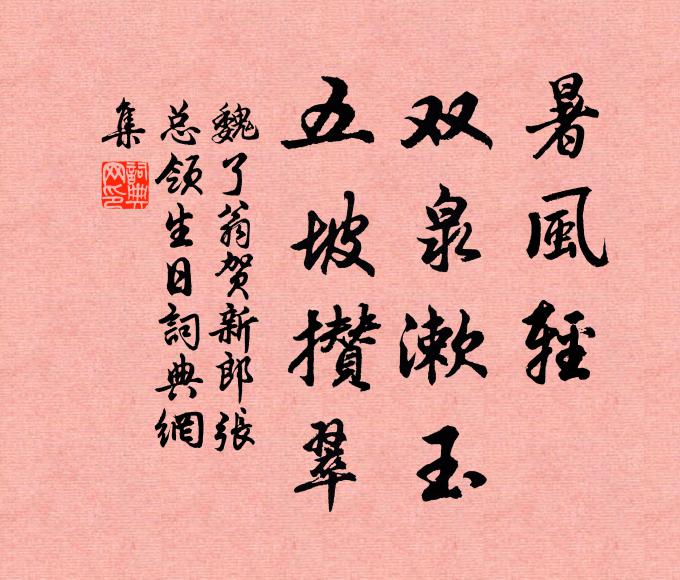 暑風輕
双泉漱玉
五坡攅翠
魏了翁贺新郎張
总领生日詞典網
集
詞典
网印